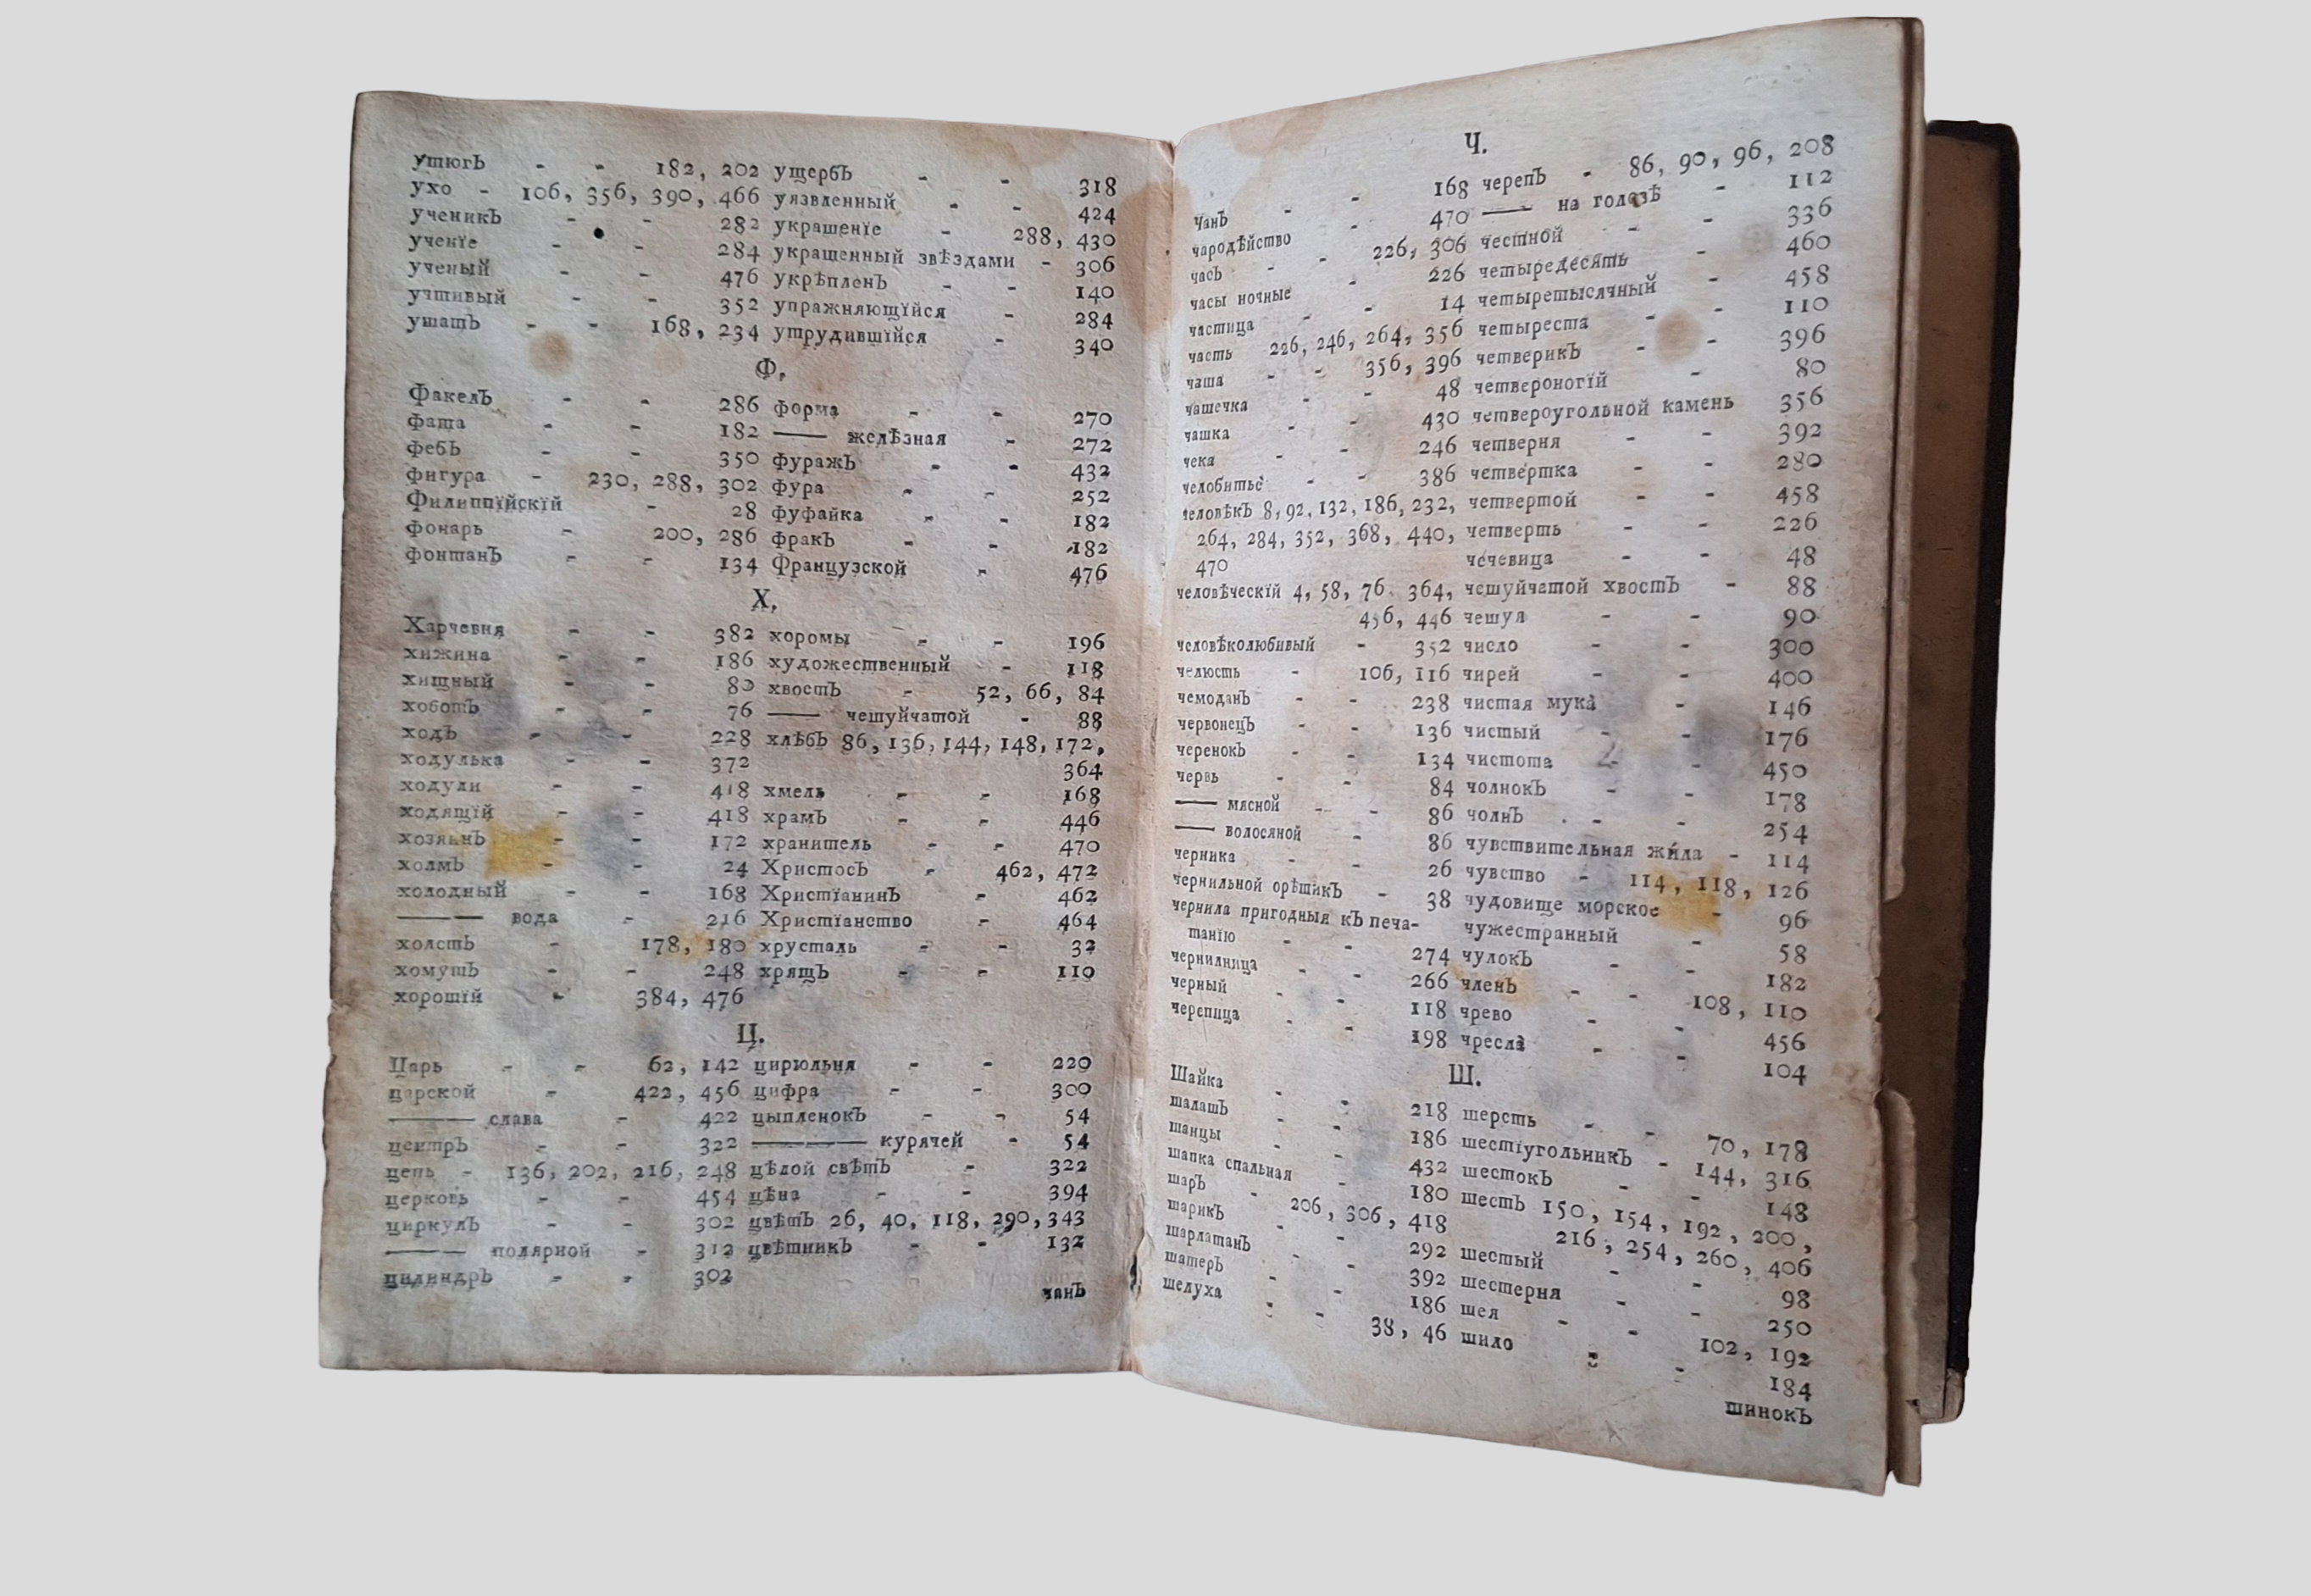 утюгЪ - - 182, 202
ухо - 106, 356, 390, 466
ученикЪ - - 282
ученїе - - 284
ученый - - 476
учтивый - - 352
ушатЪ - - 168, 234
ущербЪ - - 318
уязвленный - - 424
украшенїе - 288, 430
украшенный звѣздами - 306
укрѣпленЪ - - 140
упражняющїйся - 284
утрудившїйся - 340
Ф.
ФакелЪ - - 286
фата - - 182
фебЪ - - 350
фигура - 230, 288, 302
Филиппїйскїй - 28
фонарь - 200, 286
фонтанЪ - - 134
форма - - 270
—— желѣзная - 272
фуражЪ - - 432
фура - - 252
фуфайка - - 182
фракЪ - - 182
Французской - 476
Х.
Харчевня - - 382
хижина - - 186
хищный - - 80
хоботЪ - - 76
ходЪ - - 228
ходулька - - 372
ходули - - 418
ходящїй - - 418
хозяинЪ - - 172
холмЪ - - 24
холодный - - 168
—— вода - 216
холстЪ - 178, 180
хомутЪ - - 248
хорошїй - 384, 476
хоромы - - 196
художественный - 118
хвостЪ - 52, 66, 84
—— чешуйчатой - 88
хлѣбЪ 86, 136, 144, 148, 172,
364
хмель - - 168
храмЪ - - 446
хранитель - - 470
ХристосЪ - 462, 472
ХристїанинЪ - 462
Христїанство - 464
хрусталь - - 32
хрящЪ - - 110
Ц.
Царь - - 62, 142
царской - 422, 456
—— слава - 422
центрЪ - - 322
цепь - 136, 202, 216, 248
церковь - - 454
циркулЪ - - 302
—— полярной - 312
цилиндрЪ - - 302
цирюльня - - 220
цифра - - 300
цыпленокЪ - - 54
—— курячей - 54
цѣлой свѣтЪ - 322
цѣна - - 394
цвѣтЪ 26, 40, 118, 290, 343
цвѣтникЪ - - 132
чанЪ
Ч.
ЧанЪ - - 168
чародѣйство - 470
часЪ - - 226, 306
часы ночные - 226
частица - - 14
часть 226, 246, 264, 356
чаша - - 356, 396
чашечка - - 48
чашка - - 430
чека - - 246
челобитье - - 386
человѣкЪ 8, 92, 132, 186, 232,
264, 284, 352, 368, 440,
470
человѣческїй 4, 58, 76, 364,
456, 446
человѣколюбивый - 352
челюсть - 106, 116
чемоданЪ - - 238
червонецЪ - - 136
черенокЪ - - 134
червь - - 84
—— мясной - - 86
—— волосяной - 86
черника - - 26
чернильной орѣшикЪ - 38
чернила пригодныя кЪ печа-
танїю - - 274
чернилница - - 266
черный - - 118
черепица - - 198
черепЪ - 86, 90, 96, 208
—— на головѣ - 112
честной - - 336
четыредесять - 460
четыретысячный - 458
четыреста - - 110
четверикЪ - - 396
четвероногїй - 80
четвероугольной камень 356
четверня - - 392
четвертка - - 280
четвертой - - 458
четверть - - 226
чечевица - - 48
чешуйчатой хвостЪ - 88
чешуя - - 90
число - - 300
чирей - - 400
чистая мука - 146
чистый - - 176
чистота - 450
чолнокЪ - - 178
чолнЪ - - 254
чувствительная жила - 114
чувство - 114, 118, 126
чудовище морское - 96
чужестранный - 58
чулокЪ - - 182
членЪ - - 108, 110
чрево - - 456
чресла - - 104
Ш.
Шайка - - 218
шалашЪ - - 186
шанцы - - 432
шапка спальная - 180
шарЪ - 206, 306, 418
шарикЪ - - 292
шарлатанЪ - - 392
шатерЪ - - 186
шелуха - - 38, 46
шерсть - - 70, 178
шестїугольникЪ - 144, 316
шестокЪ - - 148
шестЪ 150, 154, 192, 200,
216, 254, 260, 406
шестый - - 98
шестерня - - 250
шея - - 102, 192
шило - - 184
шинокЪ